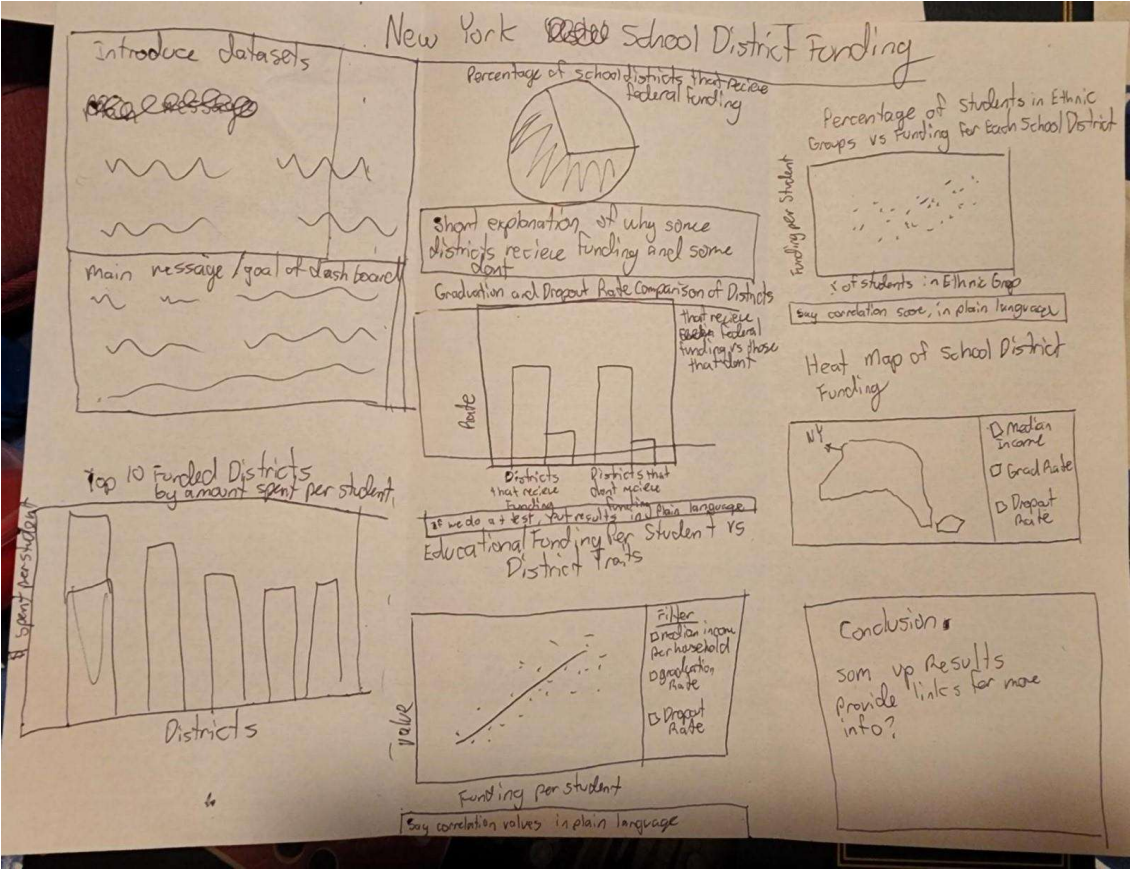 New York School District Funding
Introduce datasets
Main message/goal of dashboard
Top 10 Funded Districts
by amount spent per student.
$ Spent per student
Districts
Percentage of school districts that recieve
Federal Funding
Short explanation of why some
districts recieve funding and some
dont
Graduation and Dropout Rate Comparison of Districts
that recieve
Federal
funding vs those
that dont
Rate
Districts
that recieve
Funding
Districts that
dont recieve
funding
If we do a t test, Put results in plain language
Educational Funding Per Student vs
District Traits
Value
Filter
median income
per household
graduation
Rate
Dropout
Rate
Funding per student
Say correlation values in plain language
Percentage of Students in Ethnic
Groups vs Funding for Each School District
Funding per Student
% of students in Ethnic Group
Say correlation score, in plain language
Heat Map of School District
Funding
NY
Median
Income
Grad Rate
Dropout
Rate
Conclusion
Som up Results
Provide links for more
info?